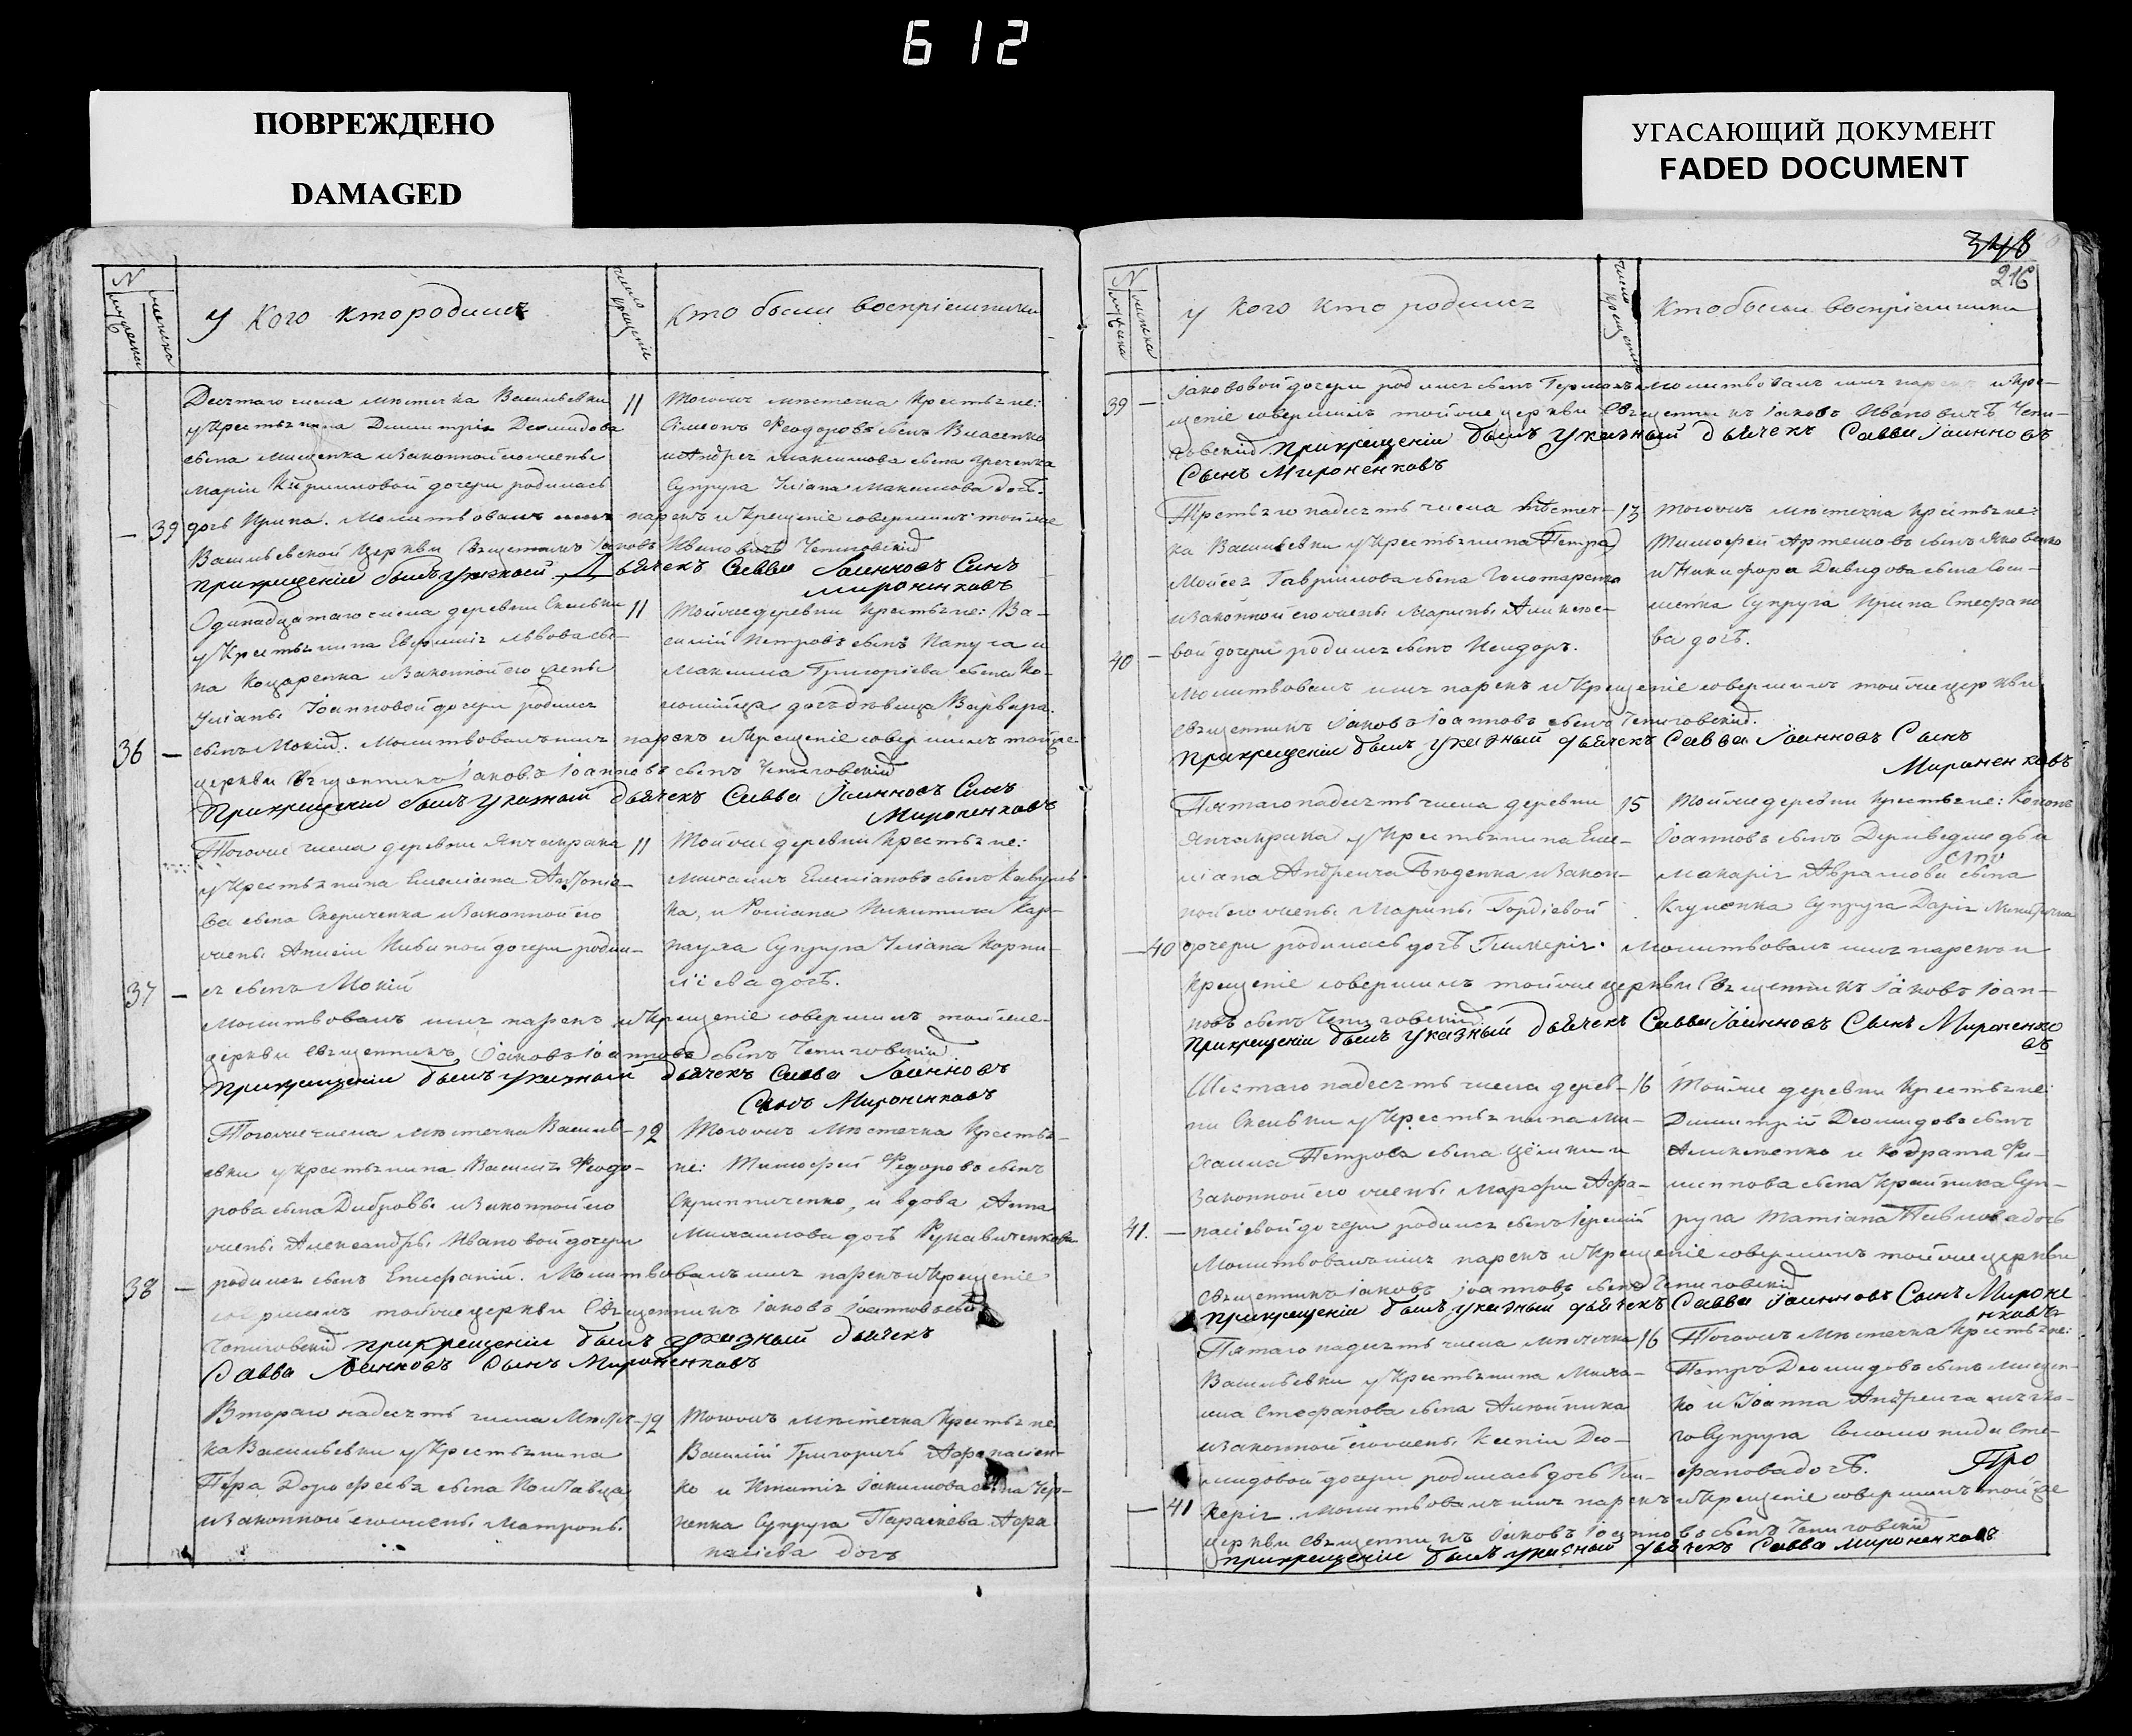 612
ПОВРЕЖДЕНО
DAMAGED
УГАСАЮЩИЙ ДОКУМЕНТ
FADED DOCUMENT
N
у кого кто родился
кто были воспріемники
Десятаго числа мѣстечка Васильевки
у крестьянина Димитрія Деомидова
сына Мищенка и законной его жены
Маріи Кирилловой дочери родилась
39 дочь Ирина. Молитвовалъ имя нарекъ и крещеніе совершилъ тойже
Васильевской церкви священникъ Іаковъ Ивановичъ Чепиговскій
При крещеніи былъ указный Дьячекъ Савва Іоанновъ Синъ
Мироненковъ
11
Тогожъ мѣстечка крестьяне:
Сімеонъ Феодоровъ сынъ Власенко
и Андрея Максимова сына Греченка
Супруга Уліана Максимова дочь.
Одинадцатаго числа деревни Скельки
у крестьянина Евфимія Львова сы-
на Коцаренка и законной его жены
Уліаны Іоанновой дочери родился
36 — сынъ Мокій. Молитвовалъ имя нарекъ и крещеніе совершилъ тойже
церкви священникъ Іаковъ Іоанновъ сынъ Чепиговскій
При крещеніи былъ указный дьячекъ Савва Іоанновъ Синъ
Мироненковъ
11
Тойже деревни крестьяне: Ва-
силій Петровъ сынъ Папуга и
Максима Григоріева сына Ко-
ломійца дочь дѣвица Варвара.
Тогоже числа деревни Янчакрака
у крестьянина Емеліана Антоніе-
ва сына Скориченка и законной его
жены Анисіи дочери родил-
37 — ся сынъ Мокій
Молитвовалъ имя нарекъ и крещеніе совершилъ тойже
церкви священникъ Іаковъ Іоанновъ сынъ Чепиговскій
При крещеніи былъ указный дьячекъ Савва Іоанновъ
Сынъ Мироненковъ
11
Тойже деревни крестьяне:
Михаилъ Емеліановъ сынъ
ка, и Роміана Никитича Кар-
пауха Супруга Уліана Корни-
ліїева дочь.
Тогоже числа мѣстечка Василь-
евки у крестьянина Василія Феодо-
рова сына Дибровы и законной его
жены Александры Ивановой дочери
38 — родился сынъ Епифаній. Молитвовалъ имя нарекъ и крещеніе
совершилъ тойже церкви Священникъ Іаковъ Іоанновъ сынъ
Чепиговскій при крещеніи былъ указный дьячекъ
Савва Іоанновъ Сынъ Мироненковъ
12
Тогожъ мѣстечка крестья-
не: Тимофей Федоровъ сынъ
Скрипниченко, и вдова Анна
Михаилова дочь Рукавиченкова
Втораго надесять числа мѣстеч-
ка Васильевки у крестьянина
Петра Дорофеева сына Полтавца
и законной его жены Матроны
12
Тогожъ мѣстечка крестьяне
Василій Григоричъ Афанасіен-
ко и Игнатія Іакимова сына Чер-
ненка Супруга Параскева Афа
насіева дочь
348
216
N
у кого кто родился
кто были воспріемники
39 — Іаковвой дочери родился сынъ Германъ молитвовалъ имя нарекъ и кре-
щеніе совершилъ тойже церкви Священникъ Іаковъ Ивановичъ Чепи-
говскій при крещеніи былъ указный дьячекъ Савва Іоанновъ
Сынъ Мироненковъ
Третьяго надесять числа мѣстеч-
ка Васильевки у крестьянина Петра
Мойсея Гаврилова сына Гончаренка
и законной его жены Марины Алексее-
40 — вой дочери родился сынъ Исидоръ.
Молитвовалъ имя нарекъ и крещеніе совершилъ тойже церкви
священникъ Іаковъ Іоанновъ сынъ Чепиговскій.
При крещеніи былъ указный дьячекъ Савва Іоанновъ Сынъ
Мироненковъ
13
Тогожъ мѣстечка крестьяне:
Тимофей Артемовъ сынъ Яковенко
и Никифора Давидова сына
Супруга Ирина Стефано
ва дочь.
Пятаго надесять числа деревни
Янчакрака у крестьянина Еме-
ліана Андреича и закон-
ной его жены Марины Гордіевой
— 40 дочери родилась дочь Гликерія. Молитвовалъ имя нарекъ и
крещеніе совершилъ тойже церкви Священникъ Іаковъ Іоан-
новъ сынъ Чепиговскій.
При крещеніи былъ указный дьячекъ Савва Іоанновъ Сынъ Мироненко
въ
15
Тойже деревни крестьяне: Кононъ
Іоанновъ сынъ
Макарія Аврамова сына
Супруга Дарія Никитична
Шестаго надесять числа дерев-
ни Скельки у крестьянина Ми-
хаила Петрова сына и
законной его жены Марфы Афа-
41. — насіевой дочери родился сынъ Іеремій
Молитвовалъ имя нарекъ и крещеніе совершилъ тойже церкви
Священникъ Іаковъ Іоанновъ сынъ Чепиговскій
При крещеніи былъ указный дьячекъ Савва Іоанновъ Сынъ Мироне
нковъ
16
Тойже деревни крестьяне:
Димитрій Деомидовъ сынъ
Алексеенко и Кодрата Фи-
липпова сына Крайника Суп-
руга Татіана Павлова дочь
Пятаго надесять числа мѣстечка
Васильевки у крестьянина Миха-
ила Стефанова сына Алейника
и законной его жены Ксеніи Део-
мидовой дочери родилась дочь Гли-
— 41 керія. Молитвовалъ имя нарекъ и крещеніе совершилъ тойже
церкви священникъ Іаковъ Іоанновъ сынъ Чепиговскій
При крещеніи былъ указный дьячекъ Савва Мироненковъ
16
Тогожъ мѣстечка крестьяне:
Петръ Деомидовъ сынъ Мищен-
ко и Іоанна Андреича
го Супруга Соломонида Сте-
фанова дочь.
Про